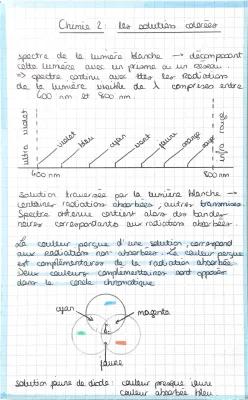 Chimie 2 : les solutions colorées
spectre de la lumière blanche → décomposant
cette lumière avec un prisme ou un réseau.
⇒ spectre continu avec ttes les radiations
de la lumière visible de λ comprises entre
400 nm et 800 nm.
ultra violet
violet
bleu
cyan
vert
jaune
orange
rouge
infra rouge
400 nm
800 nm
solution traversée par la lumière blanche →
certaines radiations absorbées, autres transmises
Spectre obtenue contient alors des bandes
noires correspondants aux radiations absorbées.
La couleur perçue d'une solution correspond
aux radiations non absorbées. La couleur perçue
est complémentaire de la radiation absorbée.
Deux couleurs complémentaires sont opposées
dans le cercle chromatique.
cyan
magenta
jaune
solution jaune de diode : couleur presque jaune
couleur absorbée bleu